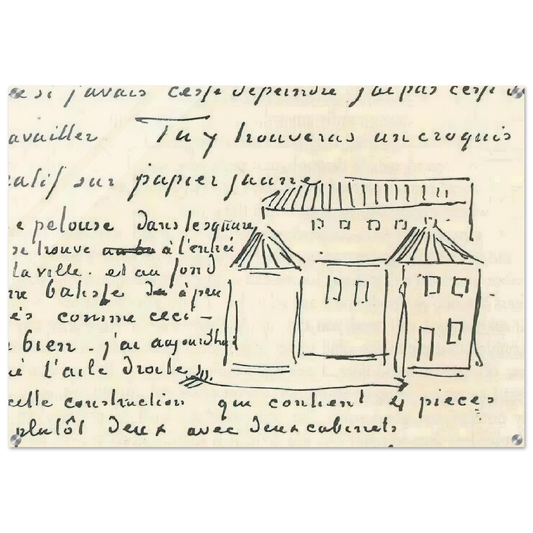 si j'avais cessé de peindre j'ai pas cessé de
availler Tu y trouveras un croquis
atif sur papier jaune
e pelouse dans le square
se trouve à l'entrée
la ville. et au fond
ne batisse à peu
ès comme ceci –
bien. j'ai aujourdhui
é l'aile droite
cette construction qui contient 4 pieces
plutôt deux avec deux cabinets